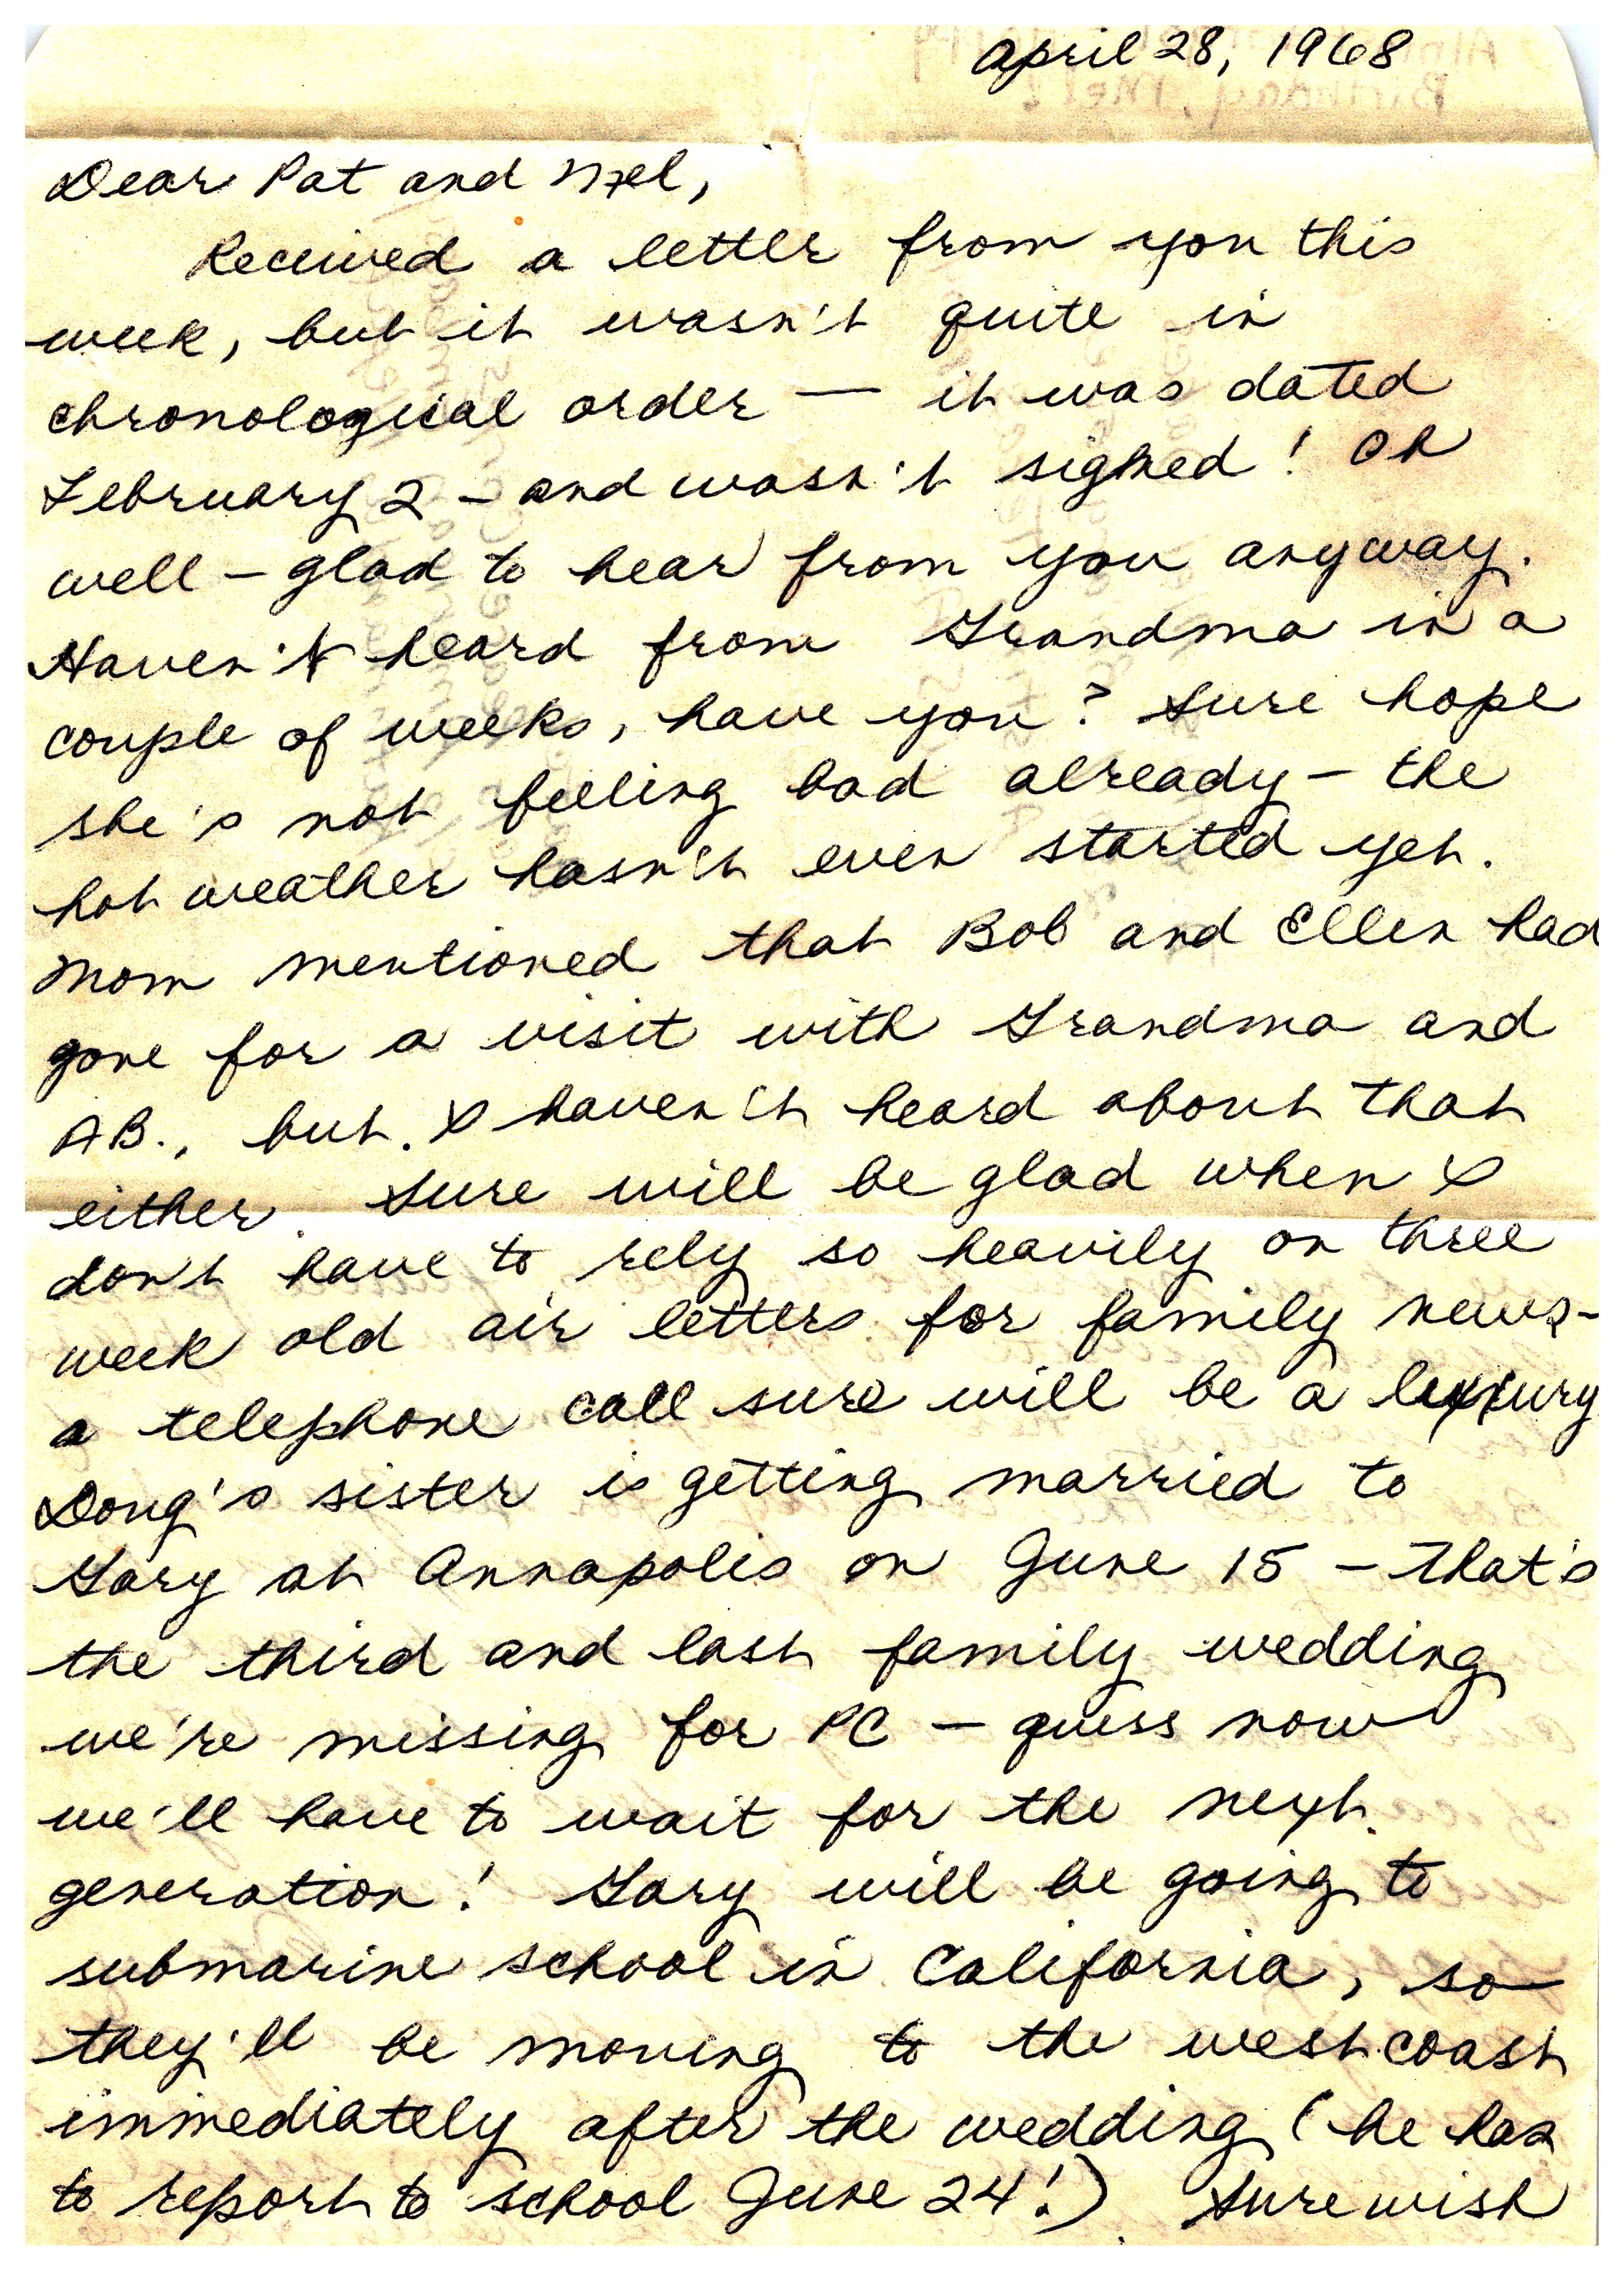 April 28, 1968
Dear Pat and Mel,
Received a letter from you this
week, but it wasn't quite in
chronological order — it was dated
February 2 – and wasn't signed! Oh
well – glad to hear from you anyway.
Haven't heard from Grandma in a
couple of weeks, have you? Sure hope
she's not feeling bad already – the
hot weather hasn't even started yet.
Mom mentioned that Bob and Ellen had
gone for a visit with Grandma and
AB., but I haven't heard about that
either. Sure will be glad when I
don't have to rely so heavily on three
week old air letters for family news –
a telephone call sure will be a luxury
Doug's sister is getting married to
Gary at Annapolis on June 15 – that's
the third and last family wedding
we're missing for PC – guess now
we'll have to wait for the next
generation! Gary will be going to
submarine school in California, so
they'll be moving to the west coast
immediately after the wedding (he has
to report to school June 24!) Sure wish